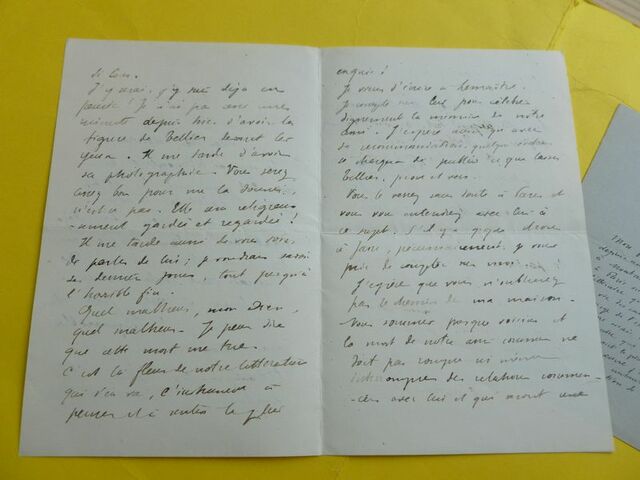 J'y irai, j'y suis déjà en
pensée ! Je n'ai pas
minute depuis hier, d'avoir la
figure de Tellier devant les
yeux. Il me tarde d'avoir
sa photographie. Vous serez
assez bon pour me la donner,
n'est ce pas. Elle sera religieu-
-sement gardée et regardée !
Il me tarde aussi de vous voir,
de parler de lui ; je voudrais savoir
ses derniers jours, tout jusqu'à
l'horrible fin.
Quel malheur, mon Dieu,
quel malheur. Je peux dire
que cette mort me tue.
C'est la fleur de notre littérature
qui s'en va,
penser et à sentir la plus
exquis !
Je viens d'écrire à Lemaître.
Je compte sur lui pour célébrer
dignement la mémoire de notre
ami. J'espère qu'avec
sa recommandation, quelque
se chargera de publier ce que laisse
Tellier, prose et vers.
Vous le verrez sans doute à Paris et
vous vous entendrez avec lui à
ce sujet. S'il y a quelque chose
à faire, pécuniairement, je vous
prie de compter sur moi.
J'espère que vous n'oublierez
pas le chemin de ma maison.
Nous sommes presque voisins et
la mort de notre ami commun ne
doit pas rompre ni même
interrompre des relations commen-
-cées avec lui et qui m'ont